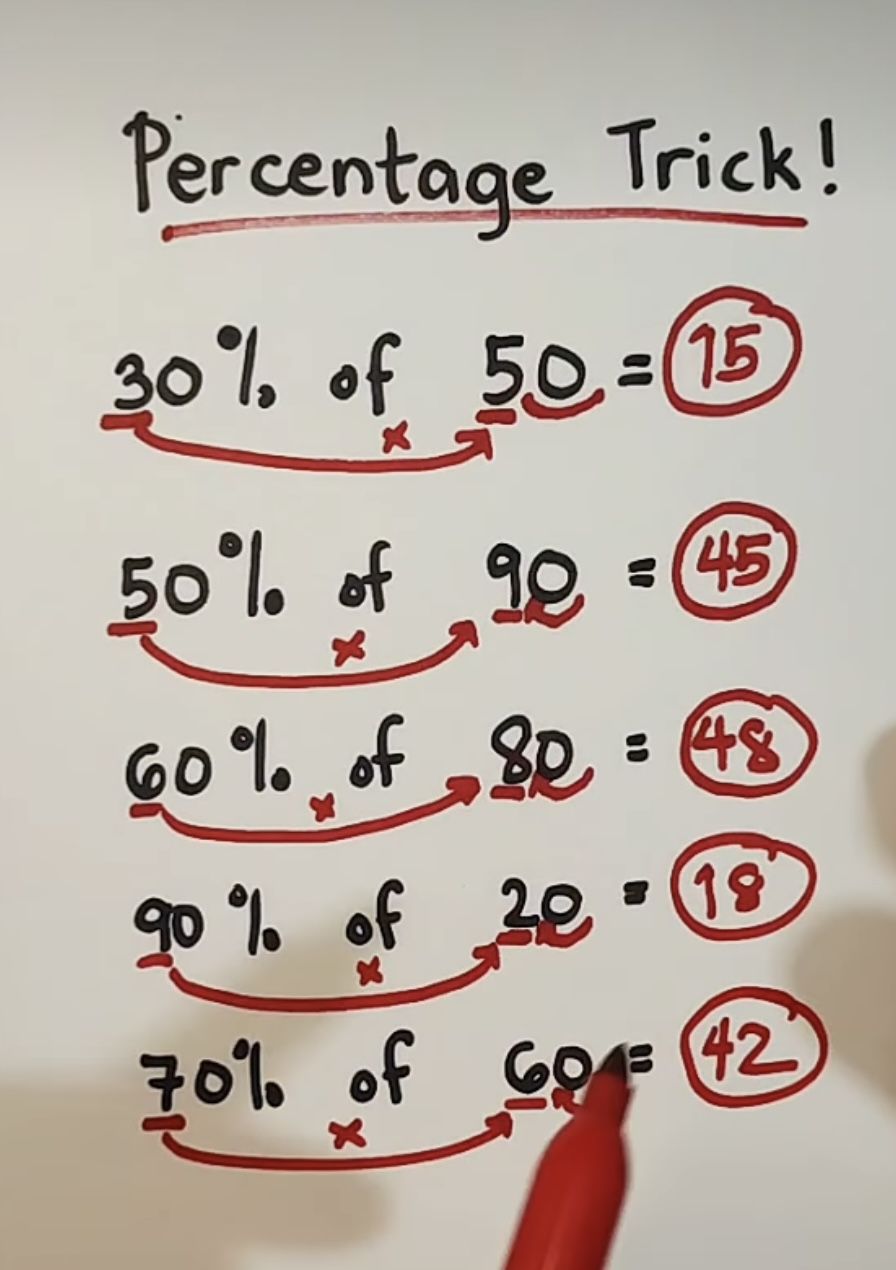 Percentage Trick!
30% of 50 = 15
×
50% of 90 = 45
×
60% of 80 = 48
×
90% of 20 = 18
×
70% of 60 = 42
×